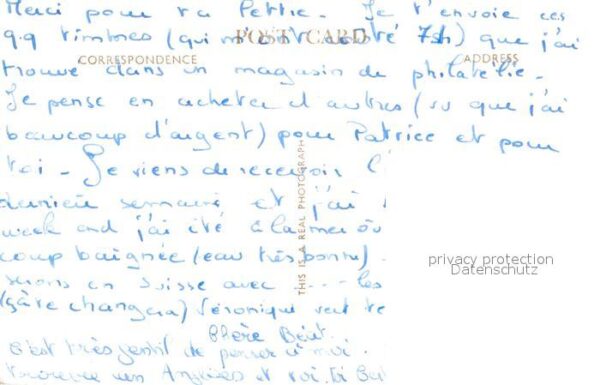 Merci pour ta lettre. Je t'envoie ces
qq timbres (qui m'ont coûté 7sh) que j'ai
POST CARD
CORRESPONDENCE
ADDRESS
trouvé dans un magasin de philatélie.
Je pense en acheter d'autres (vu que j'ai
beaucoup d'argent) pour Patrice et pour
toi. Je viens de recevoir l'
dernière semaine et j'ai
week end j'ai été à la mer où
coup baignée (eau très bonne).
serons en Suisse avec .... les
(gâre changera) Véronique veut te
THIS IS A REAL PHOTOGRAPH
privacy protection
Datenschutz
Chère Béat.
C'est très gentil de penser à moi.
Anglais et toi.